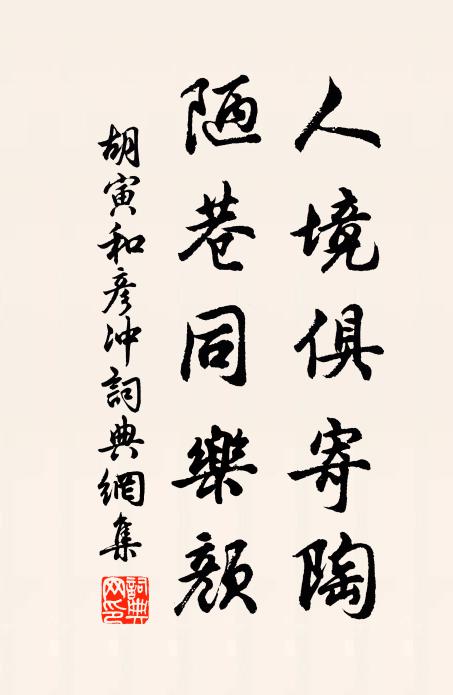 人境俱寄陶
陋巷同樂顏
胡寅和彥沖詞典網集
詞典网印